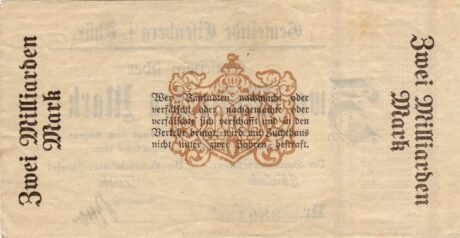 Zwei Milliarden
Mark
Wer Banknoten nachmacht oder
verfälscht oder nachgemachte oder
verfälschte sich verschafft und in den
Verkehr bringt, wird mit Zuchthaus
nicht unter zwei Jahren bestraft.
Zwei Milliarden
Mark